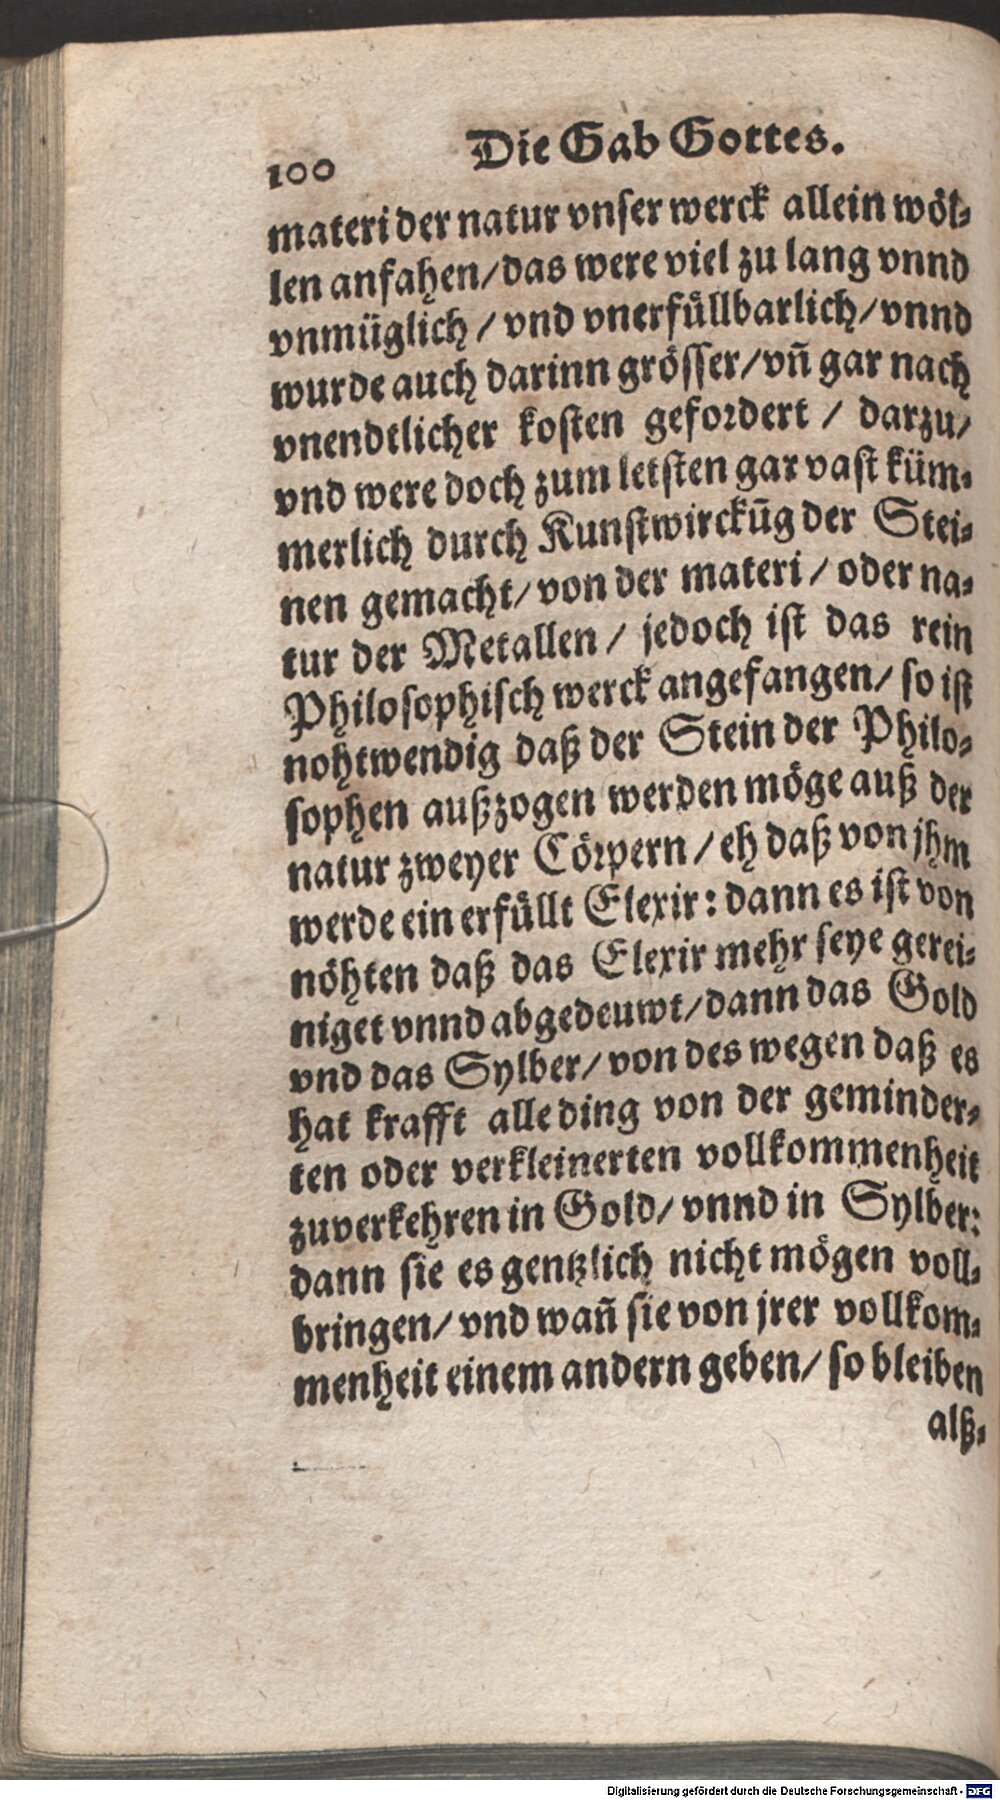 100 Die Gab Gottes.
materi der natur vnser werck allein wöl⸗
len anfahen/das were viel zu lang vnnd
vnmüglich / vnd vnerfüllbarlich/vnnd
wurde auch darinn grösser/vñ gar nach
vnendtlicher kosten gefordert / darzu/
vnd were doch zum letsten gar vast küm⸗
merlich durch Kunstwirckūg der Stei⸗
nen gemacht/von der materi / oder na⸗
tur der Metallen / jedoch ist das rein
Philosophisch werck angefangen/ so ist
nohtwendig daß der Stein der Philo⸗
sophen außzogen werden möge auß der
natur zweyer Cörpern / eh daß von jhm
werde ein erfüllt Elexir: dann es ist von
nöhten daß das Elexir mehr seye gerei⸗
niget vnnd abgedeuwt/dann das Gold
vnd das Sylber/von des wegen daß es
hat krafft alle ding von der geminder⸗
ten oder verkleinerten vollkommenheit
zuverkehren in Gold/ vnnd in Sylber:
dann sie es gentzlich nicht mögen voll⸗
bringen/vnd wañ sie von jrer vollkom⸗
menheit einem andern geben/ so bleiben
alß⸗
Digitalisierung gefördert durch die Deutsche Forschungsgemeinschaft - DFG